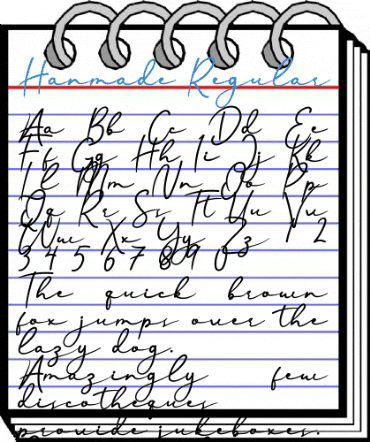 Hanmade Regular
Aa Bb Cc Dd Ee
Ff Gg Hh Ii Jj Kk
Ll Mm Nn Oo Pp
Qq Rr Ss Tt Uu Vv
Ww Xx Yy Zz 1 2
3 4 5 6 7 8 9 0
The quick brown
fox jumps over the
lazy dog.
Amazingly few
discotheques
provide jukeboxes.